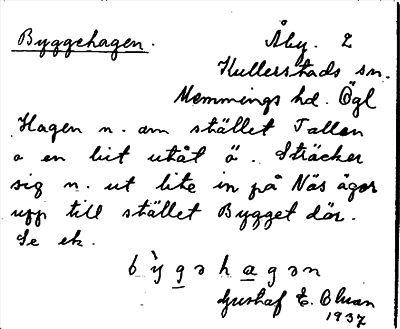 Byggehagen. Åby. 2
Kullerstads sn.
Memmings hd. Ögl
Hagen n. om stället Tallen
o en bit utåt ö. Sträcker
sig n. ut lite in på Näs ägor
upp till stället Bygget där.
Se ek.
b`ygəhagən
Gustaf E. Olsson
1937